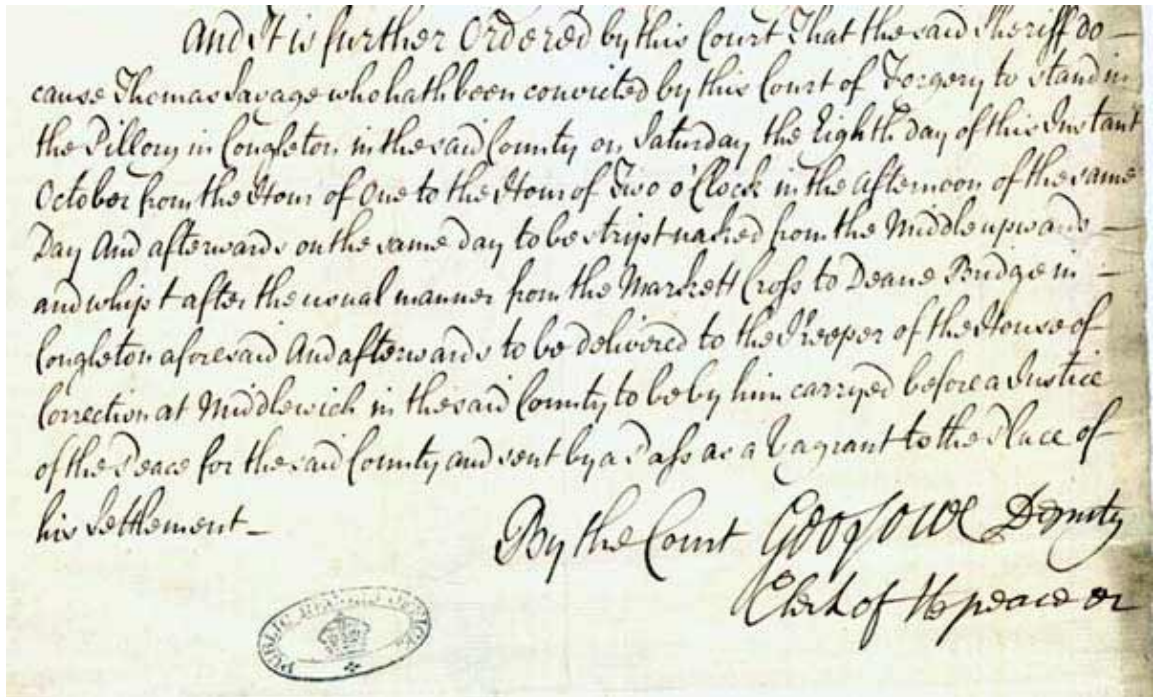 And It is further Ordered by this Court That the said Sheriff do
cause Thomas Savage who hath been convicted by this Court of Forgery to stand in
the Pillory in Congleton in the said County on Saturday the Eighth day of this Instant
October from the Hour of One to the Hour of Two o'Clock in the afternoon of the same
Day And afterwards on the same day to be stript naked from the Middle upwards
and whipt after the usual manner from the Markett Cross to Deane Bridge in
Congleton aforesaid And afterwards to be delivered to the Keeper of the House of
Correction at Middlewich in the said County to be by him carryed before a Justice
of the Peace for the said County and sent by a Pass as a Vagrant to the Place of
his Settlement
By the Court Deputy
Clerk of peace
PUBLIC RECORD OFFICE